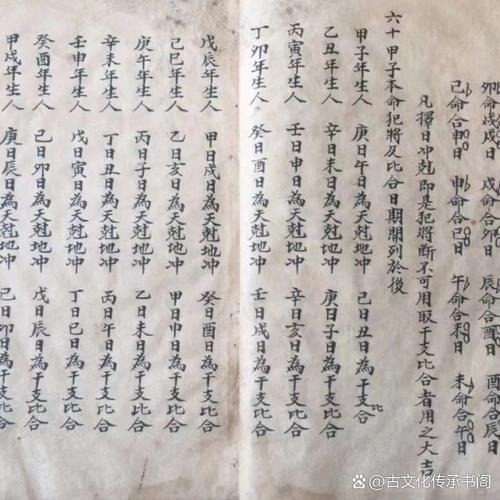 卯命戌戌日 戌命合卯日 辰命合酉日 酉命合辰日
己命合申日 申命合巳日 午命合未日 未命合午日
凡擇日冲尅即是犯将断不可用取干支比合者用之大吉
六十甲子本命犯将及比合日期開列於後
甲子年生人 庚日午日為天尅地冲 己日丑日為干支比合
乙丑年生人 辛日未日為天尅地冲 庚日子日為干支比合
丙寅年生人 壬日申日為天尅地冲 辛日亥日為干支比合
丁卯年生人 癸日酉日為天尅地冲 壬日戌日為干支比合
戊辰年生人 甲日戌日為天尅地冲 癸日酉日為干支比合
己巳年生人 乙日亥日為天尅地冲 甲日申日為干支比合
庚午年生人 丙日子日為天尅地冲 乙日未日為干支比合
辛未年生人 丁日丑日為天尅地冲 丙日午日為干支比合
壬申年生人 戊日寅日為天尅地冲 丁日巳日為干支比合
癸酉年生人 己日卯日為天尅地冲 戊日辰日為干支比合
甲戌年生人 庚日辰日為天尅地冲 己日卯日為干支比合
古文化传承书阁